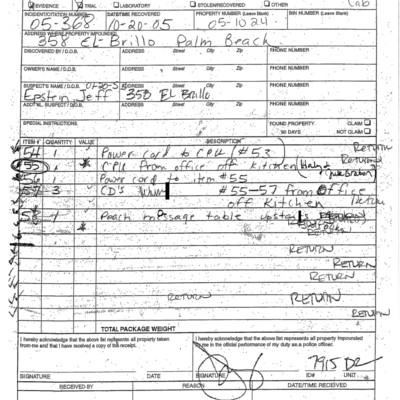 EVIDENCE TRIAL LABORATORY STOLEN/RECOVERED OTHER Lab
INCIDENT/CASE NUMBER DATE/TIME RECOVERED PROPERTY NUMBER (Leave Blank) BIN NUMBER (Leave Blank)
05-368 10-20-05 05-1024
ADDRESS WHERE PROPERTY IMPOUNDED PHONE NUMBER
358 EL-Brillo Palm Beach
DISCOVERED BY / D.O.B. ADDRESS Street City Zip PHONE NUMBER
OWNER'S NAME / D.O.B. ADDRESS Street City Zip PHONE NUMBER
SUSPECT'S NAME / D.O.B. ADDRESS Street City Zip PHONE NUMBER
Epstin, Jeff 358 EL Brillo
ADDT'NL SUSPECT / D.O.B. ADDRESS Street City Zip PHONE NUMBER
SPECIAL INSTRUCTIONS FOUND PROPERTY CLAIM
90 DAYS NOT CLAIM
ITEM # QUANTITY VALUE DESCRIPTION
54 1 Power cord to CPU (#53) RETURN
55 CPU from office off kitchen RETURN
56 Power cord to item #55
57 3 CD's #55-57 from Office
off Kitchen Return
58 1 Peach message table RETURN
RETURN
RETURN
RETURN
RETURN
RETURN
RETURN RETURN
RETURN
TOTAL PACKAGE WEIGHT
I hereby acknowledge that the above list represents all property taken I hereby acknowledge that the above list represents all property impounded
from me and that I have received a copy of this receipt. to me in the official performance of my duty as a police officer.
7915
SIGNATURE SIGNATURE ID# UNIT
RECEIVED BY REASON DATE/TIME RECEIVED